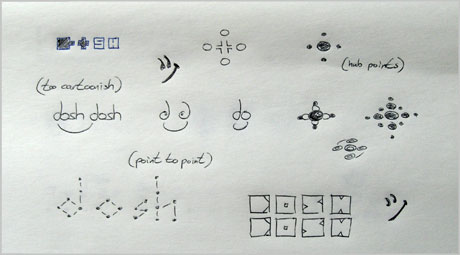 (hub points)
(too cartoonish)
dash dash
(point to point)